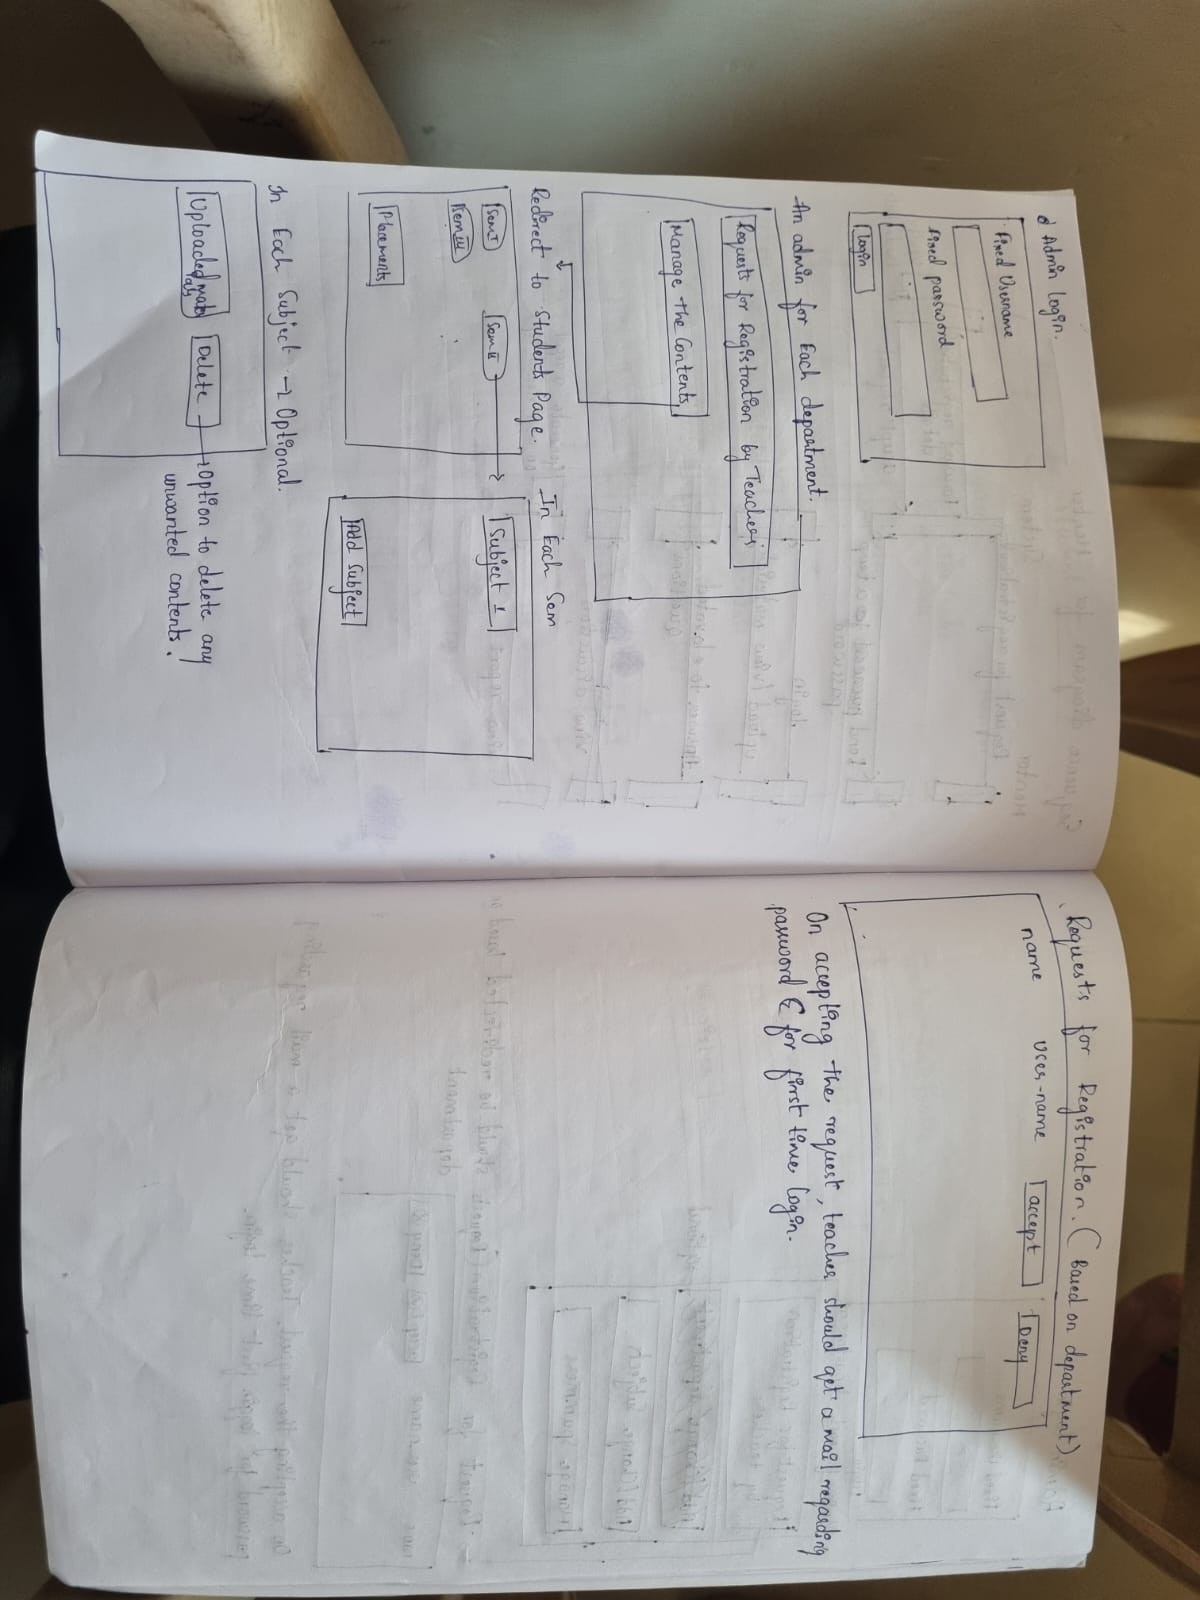 Admin Login.
Fixed Username
Fixed password
Login
An admin for Each department.
Requests for Registration by Teachers
Manage the Contents
Redirect to Students Page.
Sem I
Sem II
Sem III
Placements
In Each Sem
Subject 1
Add Subject
In Each Subject → Optional.
Uploaded
Delete
→ Option to delete any
unwanted contents.
Requests for Registration. (Based on department)
name user-name accept Deny
On accepting the request, teacher should get a mail regarding
password & for first time login.